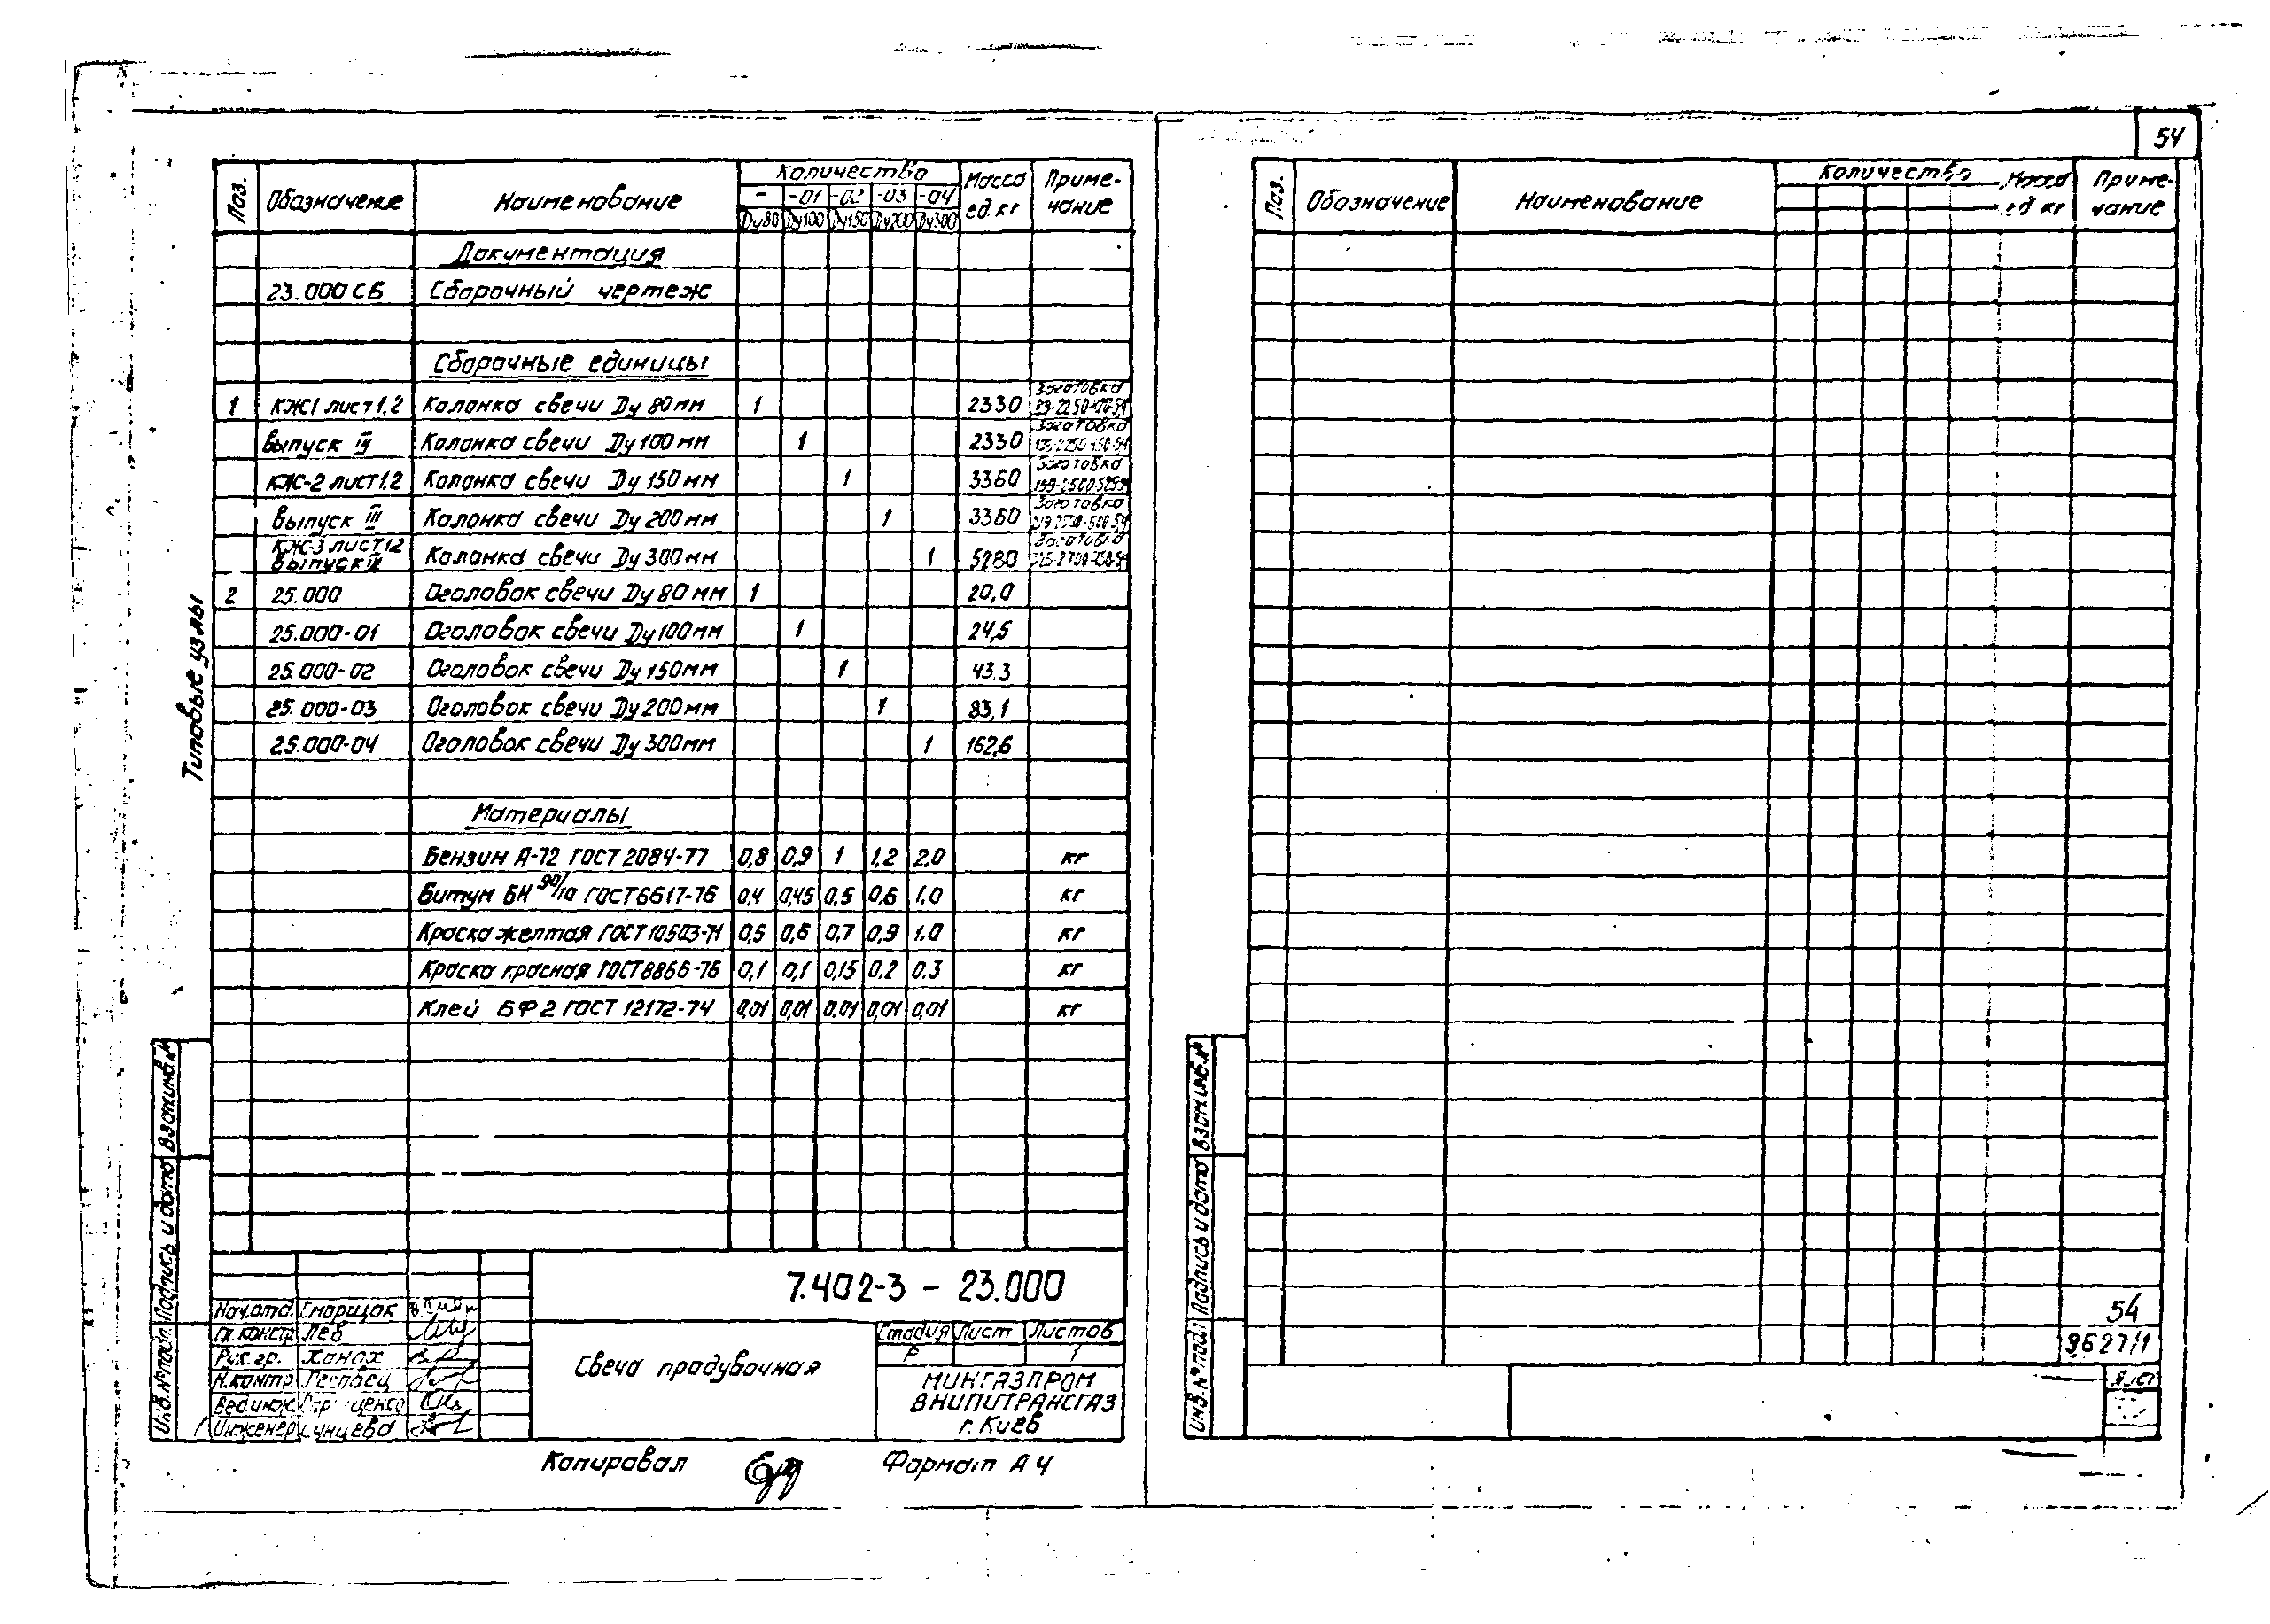 54
Поз. Обозначение Наименование Количество Масса ед. кг Приме-чание
- -01 -02 -03 -04
Ду80 Ду100 Ду150 Ду200 Ду300
Документация
23.000 СБ Сборочный чертеж
Сборочные единицы
1 КЖ1 лист 1,2 Колонка свечи Ду 80мм 1 2330 Заготовка
выпуск III Колонка свечи Ду 100мм 1 2330 Заготовка
КЖ-2 лист 1.2 Колонка свечи Ду 150мм 1 3360 Заготовка
выпуск III Колонка свечи Ду 200мм 1 3360 Заготовка
КЖ-3 лист 1.2 выпуск III Колонка свечи Ду 300мм 1 5280 Заготовка
2 25.000 Оголовок свечи Ду 80 мм 1 20,0
25.000-01 Оголовок свечи Ду 100мм 1 24,5
25.000-02 Оголовок свечи Ду 150мм 1 43,3
25.000-03 Оголовок свечи Ду 200мм 1 83,1
25.000-04 Оголовок свечи Ду 300мм 1 162,6
Материалы
Бензин А-72 ГОСТ 2084-77 0,8 0,9 1 1,2 2.0 кг
Битум БН 90/10 ГОСТ 6617-76 0,4 0,45 0,5 0,6 1.0 кг
Краска желтая ГОСТ 10503-71 0,5 0,6 0,7 0,9 1.0 кг
Краска красная ГОСТ 8866-76 0,1 0,1 0,15 0.2 0.3 кг
Клей БФ2 ГОСТ 12172-74 0,01 0,01 0,01 0,01 0,01 кг
Типовые узлы
Взам.инв.№
Подпись и дата
Инв.№подл.
7.402-3 - 23.000
Нач.отд. Сморщок
Гл.констр. Лев
Рук.гр. Ханах
Н.контр.
Вед.инж.
Инженер
Свеча продувочная
Стадия Лист Листов
Р 1
МИНГАЗПРОМ
ВНИПИТРАНСГАЗ
г. Киев
Копировал Формат А4
Поз. Обозначение Наименование Количество Масса ед кг Приме-чание
Взам инв.№
Подпись и дата
Инв.№подл
54
9627/1
Лист